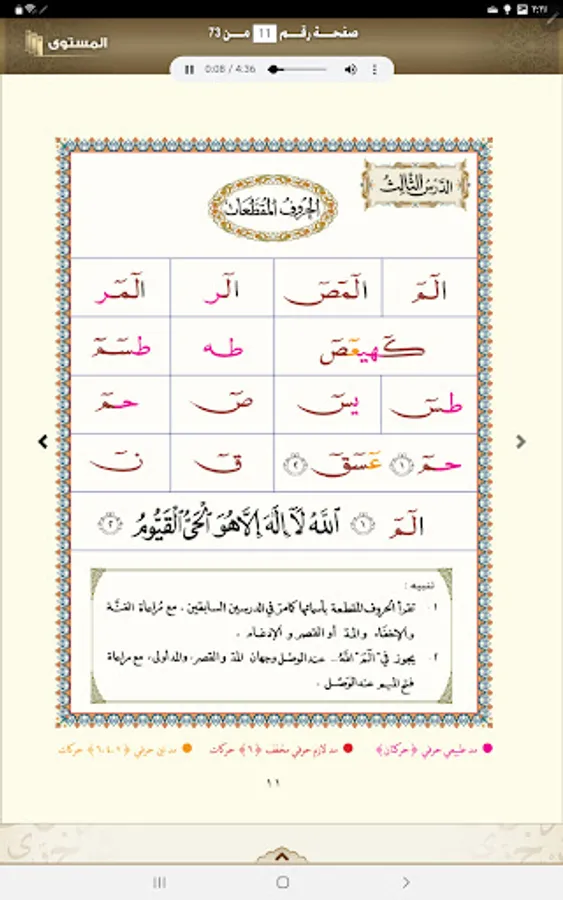 ٢:٢١
المستوى
صفحة رقم 11 من 73
0:08 / 4:36
الدَّرْسُ الثَّالِثُ
الحُرُوفُ المُقَطَّعَاتُ
الٓمٓ الٓمٓصٓ الٓر الٓمٓر
كٓهيعٓصٓ طه طسٓمٓ
طسٓ يسٓ صٓ حمٓ
حمٓ ١ عٓسٓقٓ ٢ قٓ نٓ
الٓمٓ ١ اللَّهُ لَآ إِلَٰهَ إِلَّا هُوَ الْحَيُّ الْقَيُّومُ ٢
تنبيه :
١. تقرأ الحروف المقطعة بأسمائها كما مر في الدرسين السابقين ، مع مراعاة الغنة
والإخفاء والمد أو القصر والإدغام .
٢. يجوز في "الٓمٓ اللَّهُ" عند الوصل وجهان المد والقصر، والمد أولى، مع مراعاة
فتح الميم عند الوصل .
مد طبيعي حرفي ﴿حركتان﴾ مد لازم حرفي مخفف ﴿٦﴾ حركات مد لين حرفي ﴿٦،٤،٢﴾ حركات
١١